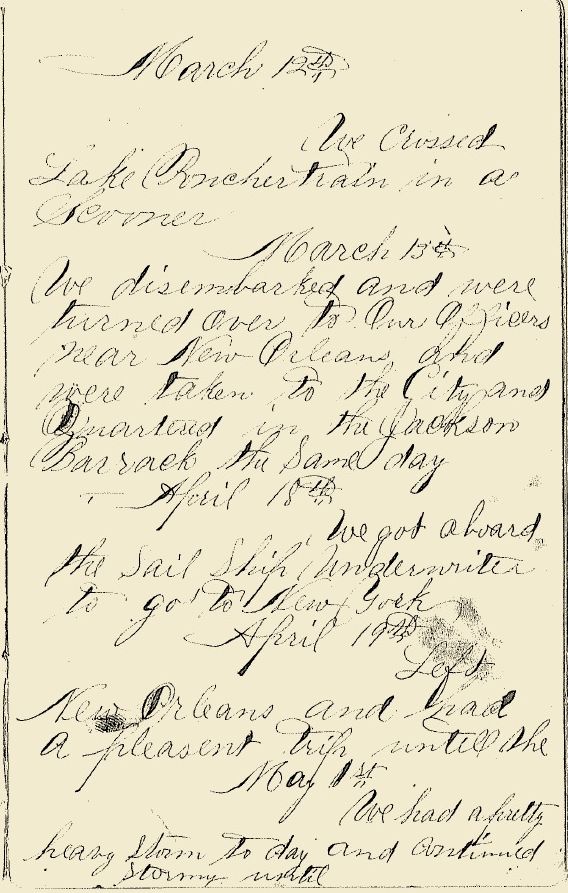 March 12th
We Crossed
Lake Ponchertrain in a
Scooner
March 13th
We disembarked and were
turned over to Our Officers
near New Orleans, and
were taken to the City and
Quartered in the Jackson
Barrack the Same day
April 18th
We got aboard
the Sail Ship Underwriter
to go to New York
April 19th
Left
New Orleans and had
a pleasent trip untill the
May 1st
We had a pretty
heavy Storm to day and continued
Stormy until